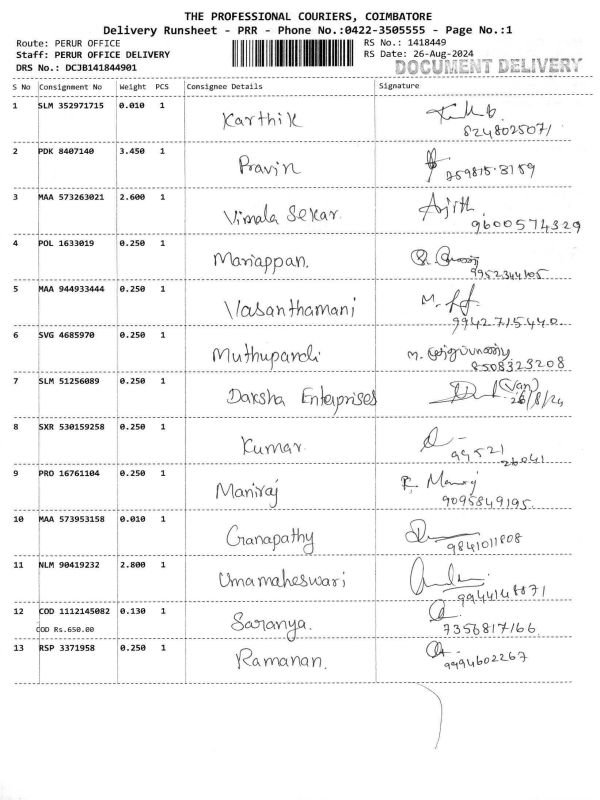 THE PROFESSIONAL COURIERS, COIMBATORE
Delivery Runsheet - PRR - Phone No.:0422-3505555 - Page No.:1
Route: PERUR OFFICE RS No.: 1418449
Staff: PERUR OFFICE DELIVERY RS Date: 26-Aug-2024
DRS No.: DCJB141844901 DOCUMENT DELIVERY
S No Consignment No Weight PCS Consignee Details Signature
1 SLM 352971715 0.010 1 Karthik
8248025071
2 PDK 8407140 3.450 1 Pravin
3 MAA 573263021 2.600 1 Vimala Sekar Ajith
9600574329
4 POL 1633019 0.250 1 Mariappan.
9952344105
5 MAA 944933444 0.250 1 Vasanthamani
9942715440.
6 SVG 4685970 0.250 1 Muthupandi M. முத்துப்பாண்டி
8508323208
7 SLM 51256089 0.250 1 Daksha Enterprises (Van)
26/8/24
8 SXR 530159258 0.250 1 Kumar
99521
26041
9 PRO 16761104 0.250 1 Maniraj R. Manoj
9095849195.
10 MAA 573953158 0.010 1 Ganapathy
9841011808
11 NLM 90419232 2.800 1 Umamaheswari
9944148871
12 COD 1112145082 0.130 1 Saranya.
COD Rs.650.00 7356817166.
13 RSP 3371958 0.250 1 Ramanan.
9994602267